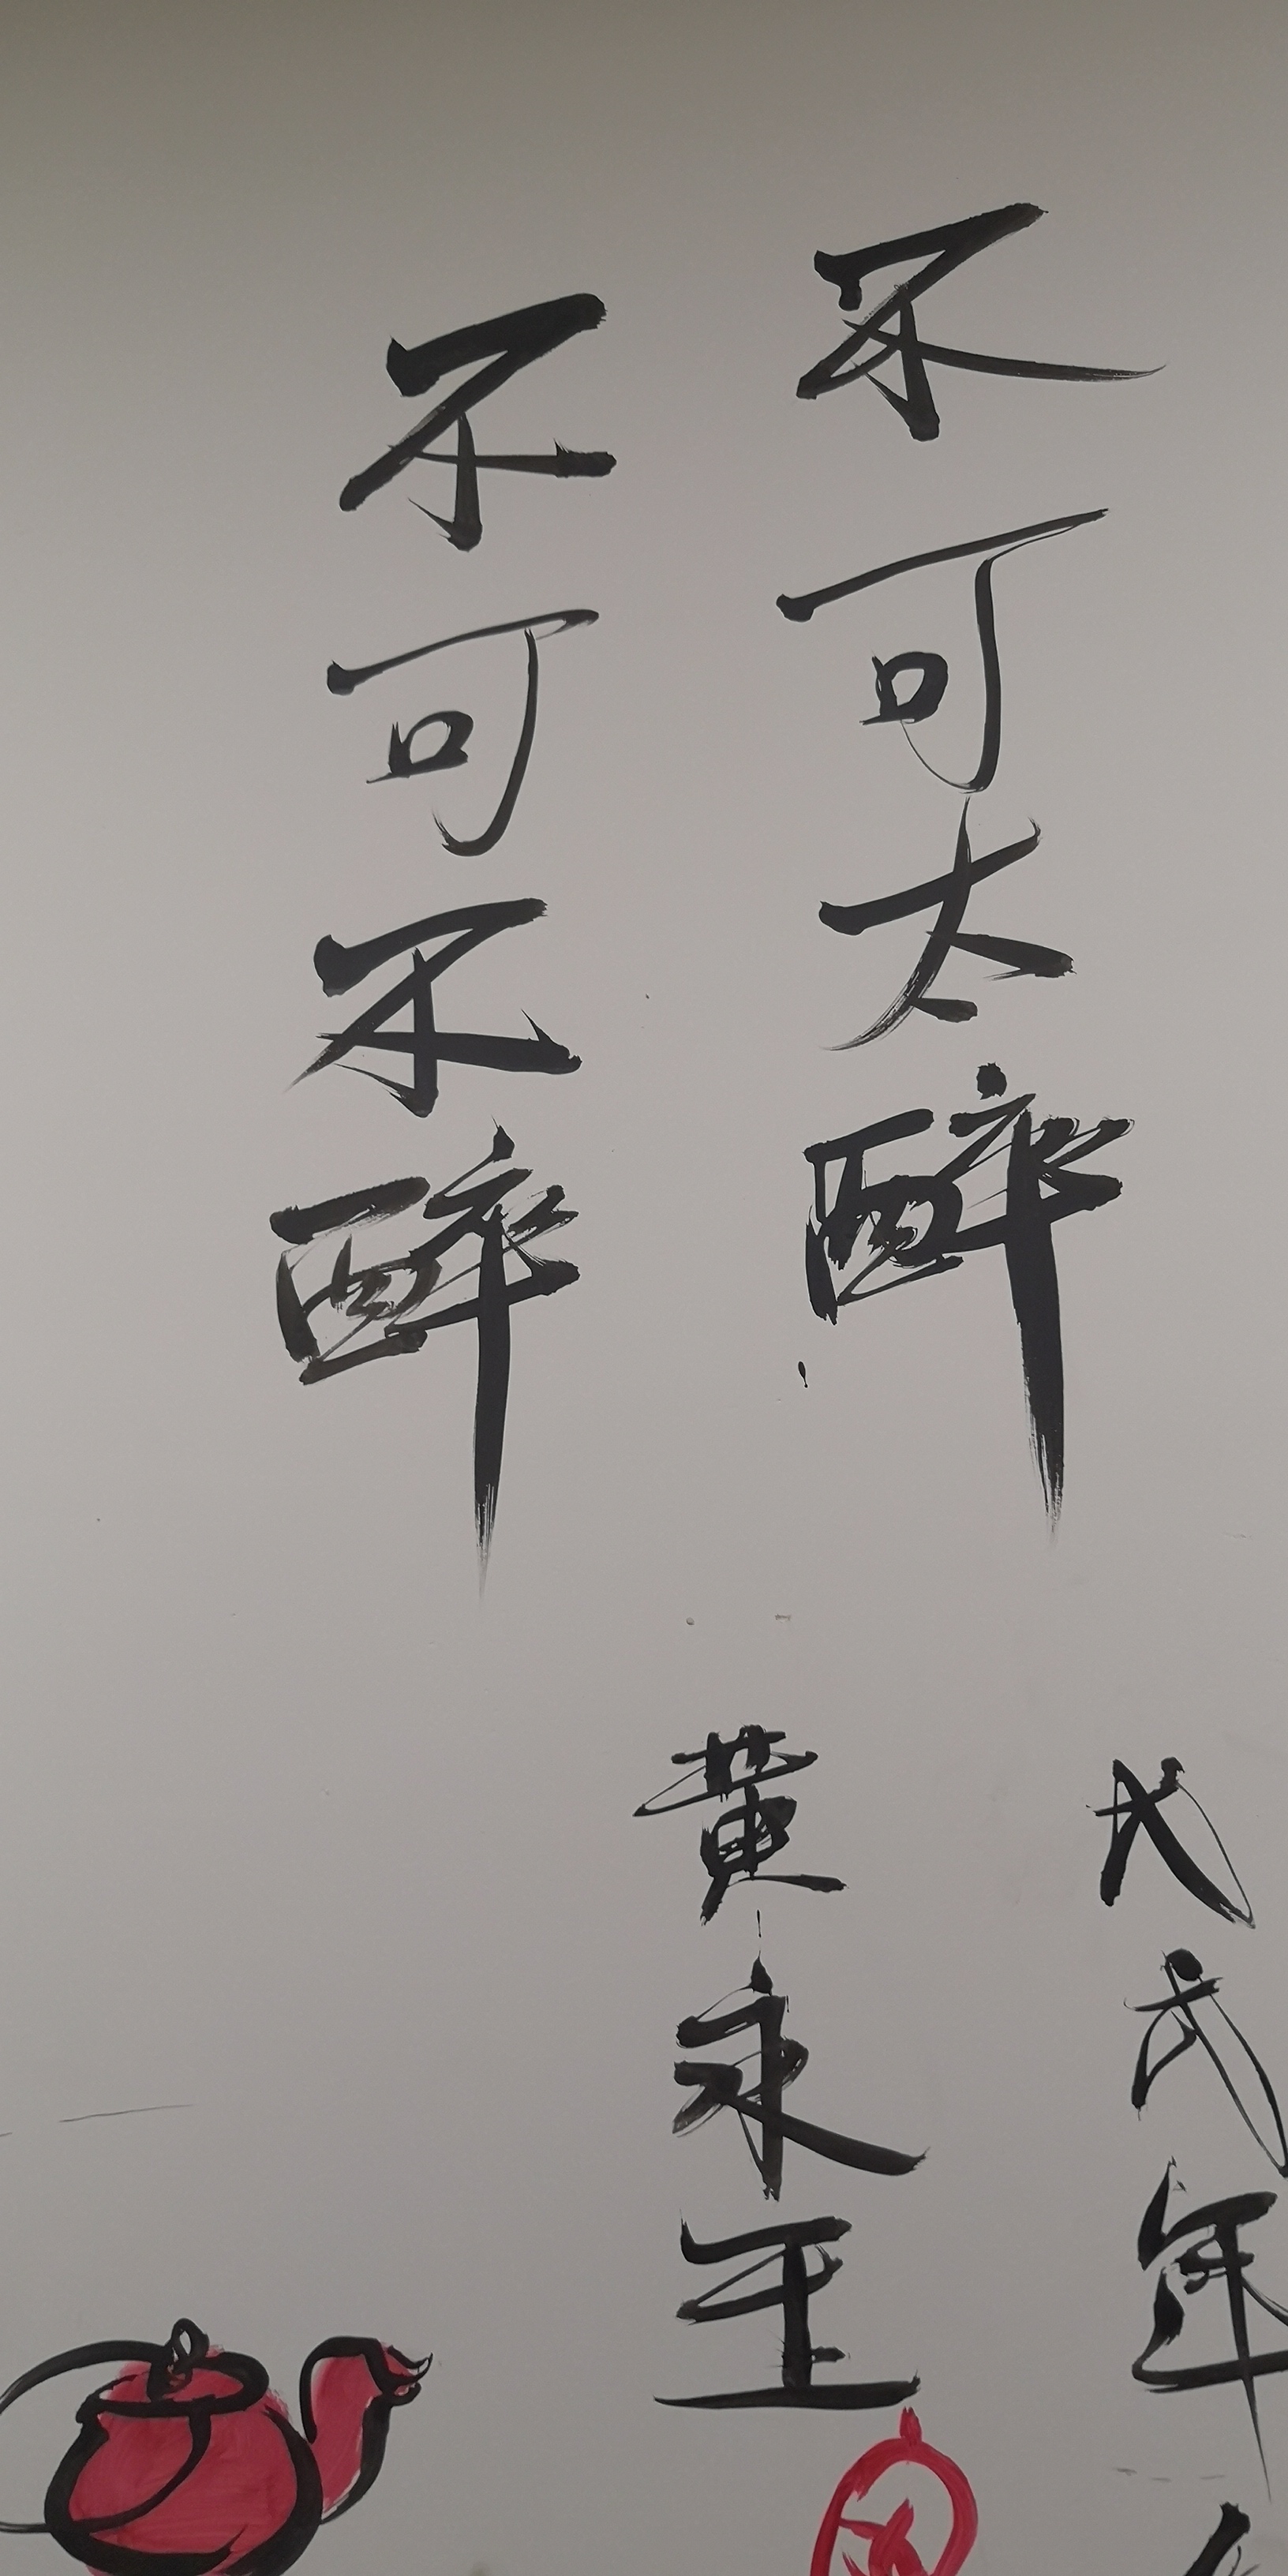 不可太醉
不可不醉
戊戌年
黄永玉